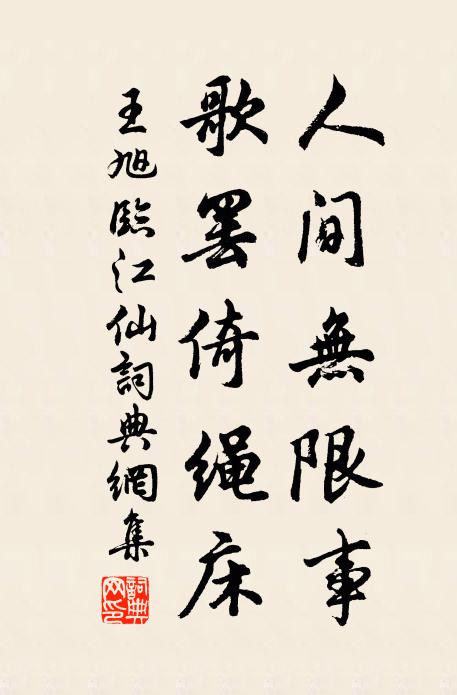 人间無限事
歌罢倚绳床
王旭臨江仙詞典網集
詞典網印